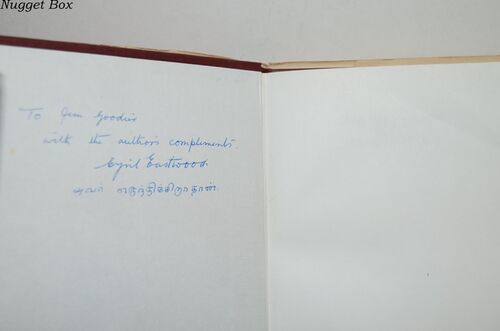 Nugget Box
To Jim Goodier
with the author's compliments.
Cyril Eastwood.
அவர்